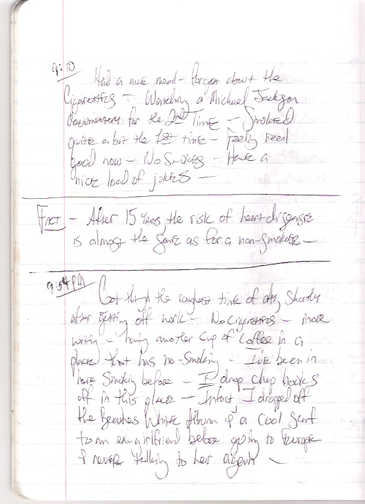 9:10
Had a nice meal - forgot about the
Cigarettes - Watching a Michael Jackson
documentary for the 2nd Time - Smoked
quite a bit the 1st time - Feeling
good now - No Smokes - Have a
nice load of jokes -
FACT - After 15 years the risk of heart disease
is almost the same as for a non-smoker -
PM
Got through the roughest time of day shortly
after getting off work - No Cigarettes - more
writing - having another cup of coffee in a
place that has no-smoking - I've been in
here smoking before - I drop chap books
off in this place - Infact I dropped off
the Beatles White Album & a cool scarf
to an exgirlfriend before going to Europe
& never talking to her again -